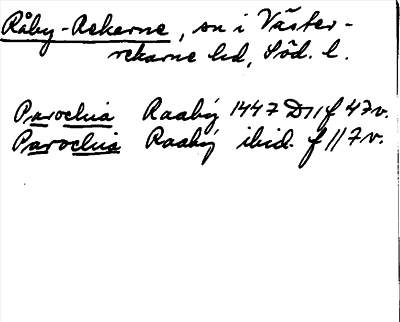 Råby-Rekarne, sn i Väster-
rekarne hd, Söd. l.
Parochia Raaby 1447 D11 f 47v.
Parochia Raaby ibid. f 117v.